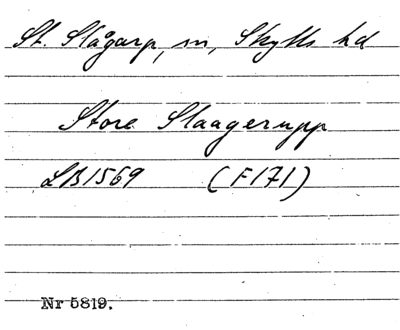 St. Slågarp, sn, Skytts hd
Store Slaagerupp
LB1569 (F171)
Nr 5819.